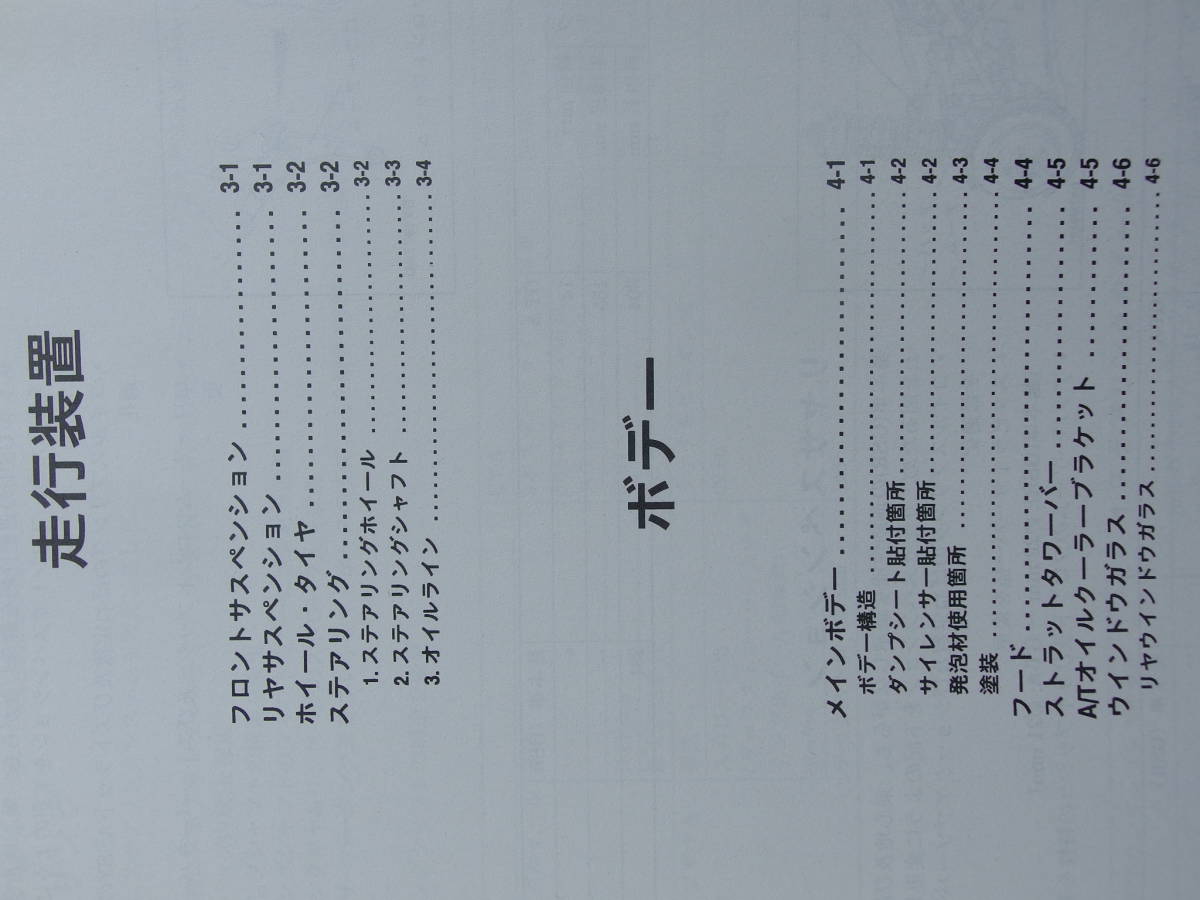 走行装置
フロントサスペンション..................3-1
リヤサスペンション......................3-1
ホイール・タイヤ........................3-2
ステアリング............................3-2
1. ステアリングホイール..................3-2
2. ステアリングシャフト..................3-3
3. オイルライン..........................3-4
ボデー
メインボデー............................4-1
ボデー構造..............................4-1
ダンプシート貼付箇所....................4-2
サイレンサー貼付箇所....................4-2
発泡材使用箇所..........................4-3
塗装....................................4-4
フード..................................4-4
ストラットタワーバー....................4-5
A/Tオイルクーラーブラケット.............4-5
ウインドウガラス........................4-6
リヤウインドウガラス....................4-6